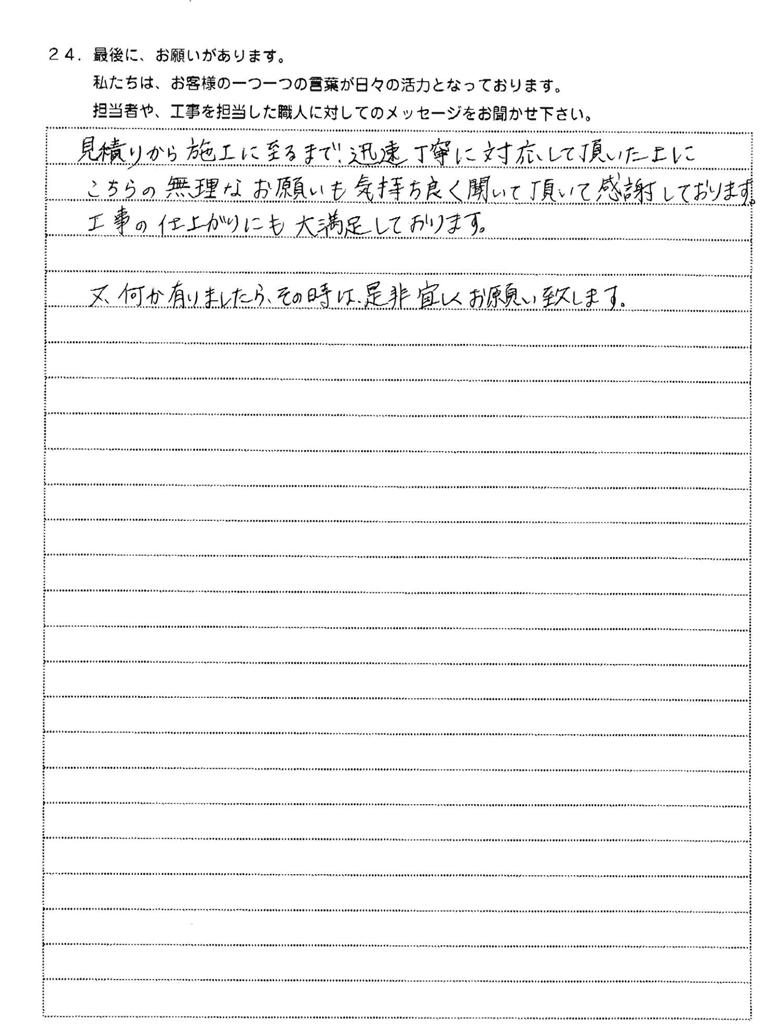 24．最後に、お願いがあります。
私たちは、お客様の一つ一つの言葉が日々の活力となっております。
担当者や、工事を担当した職人に対してのメッセージをお聞かせ下さい。
見積りから施工に至るまで、迅速丁寧に対応して頂いた上に
こちらの無理なお願いも気持ち良く聞いて頂いて感謝しております。
工事の仕上がりにも大満足しております。
又、何か有りましたら、その時は、是非宜しくお願い致します。